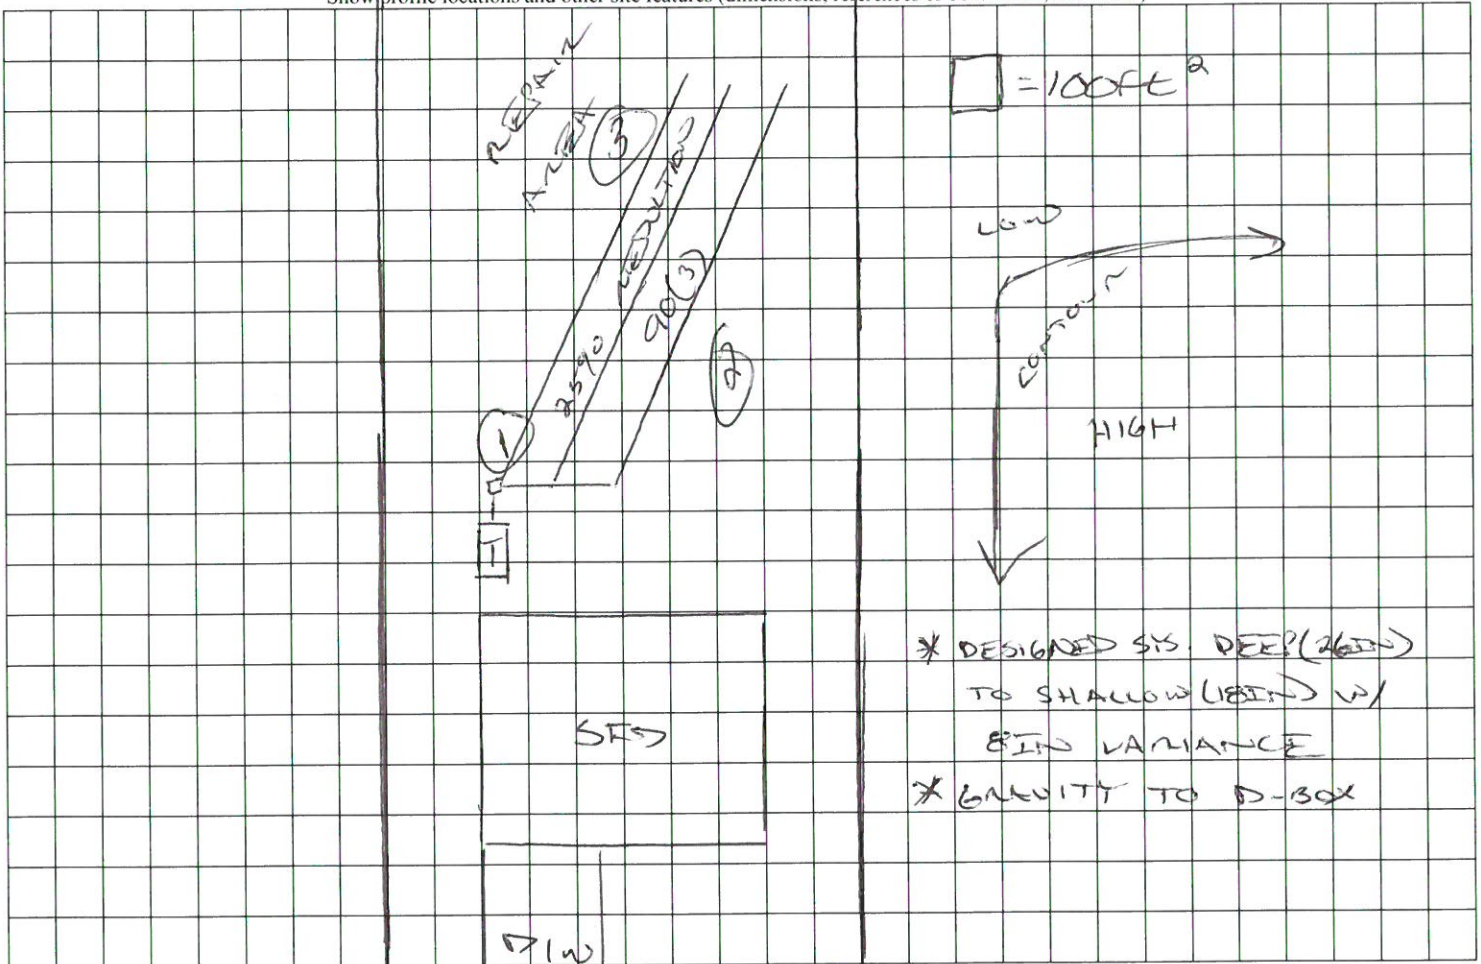 Show profile locations and other site features (dimensions,
REPAIR
AREA
3
= 100ft²
25% REDUCTION
90(3)
2
1
T
LOW
CONTOUR
HIGH
SFD
D/W
* DESIGNED SYS. DEEP(26IN)
TO SHALLOW (18IN) W/
8IN VARIANCE
* GRAVITY TO D-BOX